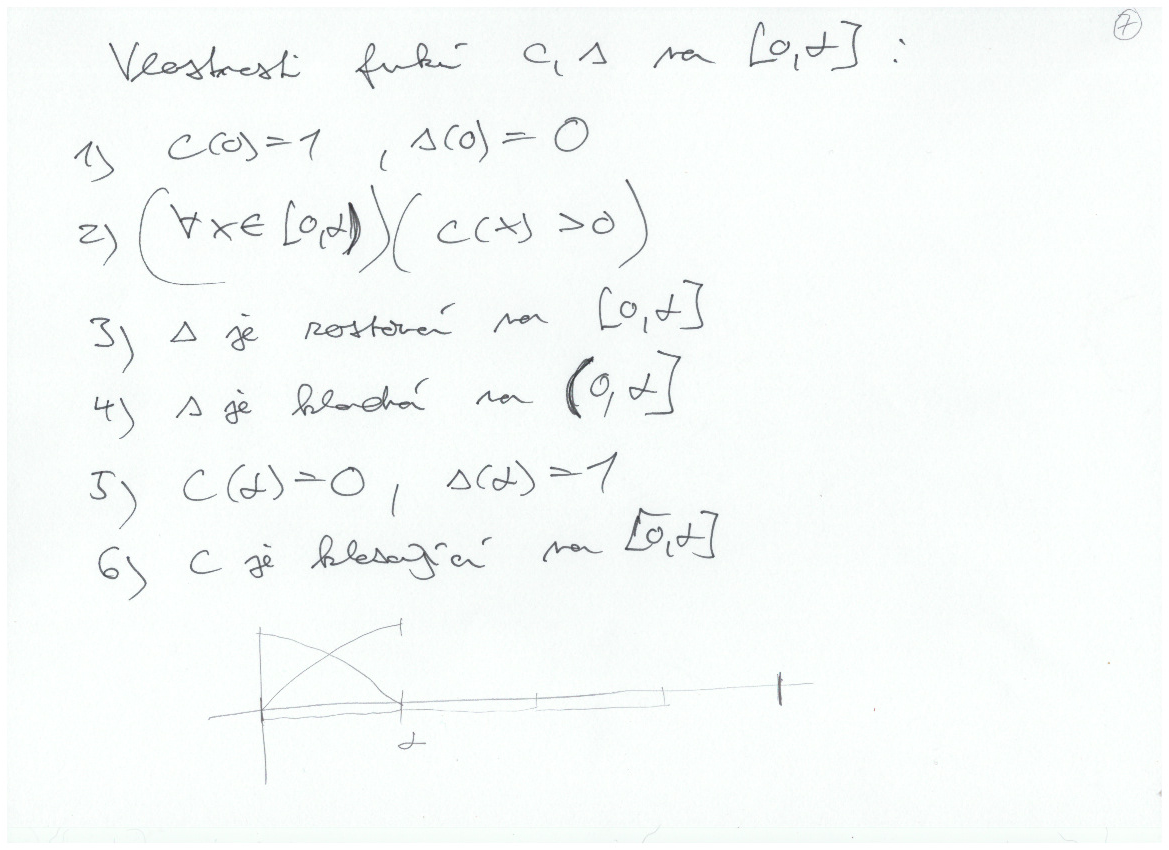 7
Vlastnosti funkcí c, s na [0,α] :
1) c(0)=1 , s(0) = 0
2) (∀x∈ [0,α))( c(x) >0)
3) s je rostoucí na [0,α]
4) s je kladná na (0,α]
5) c(α)=0, s(α)=1
6) c je klesající na [0,α]
α